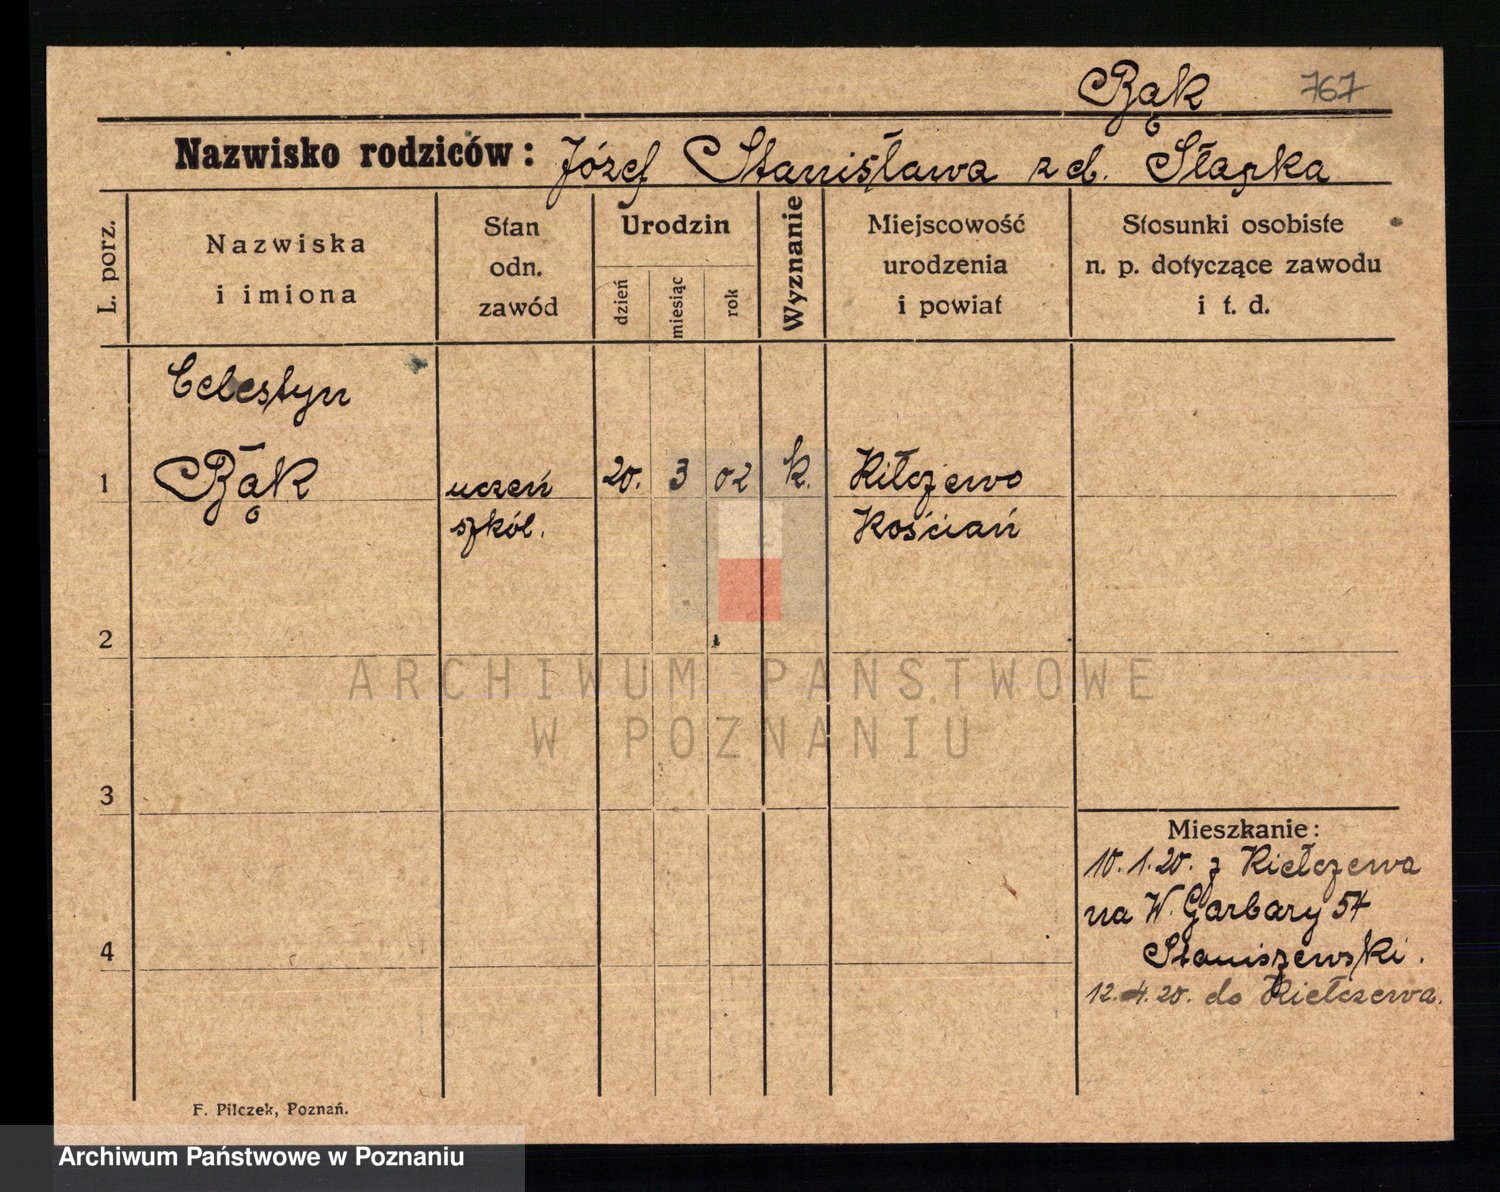 Bąk 767
Nazwisko rodziców: Józef Stanisława z d. Słapka
L. porz.
Nazwiska
i imiona
Stan
odn.
zawód
Urodzin
dzień
miesiąc
rok
Wyznanie
Miejscowość
urodzenia
i powiat
Stosunki osobiste
n. p. dotyczące zawodu
i t. d.
Celestyn
1 Bąk uczeń 20. 3 02 k. Kiłczewo
szkól. Kościań
2
ARCHIWUM PAŃSTWOWE
W POZNANIU
3
Mieszkanie:
10.1.20. z Kiełczewa
na W. Garbary 54
Staniszewski.
4
12.4.20. do Kiełczewa.
F. Pilczek, Poznań.
Archiwum Państwowe w Poznaniu